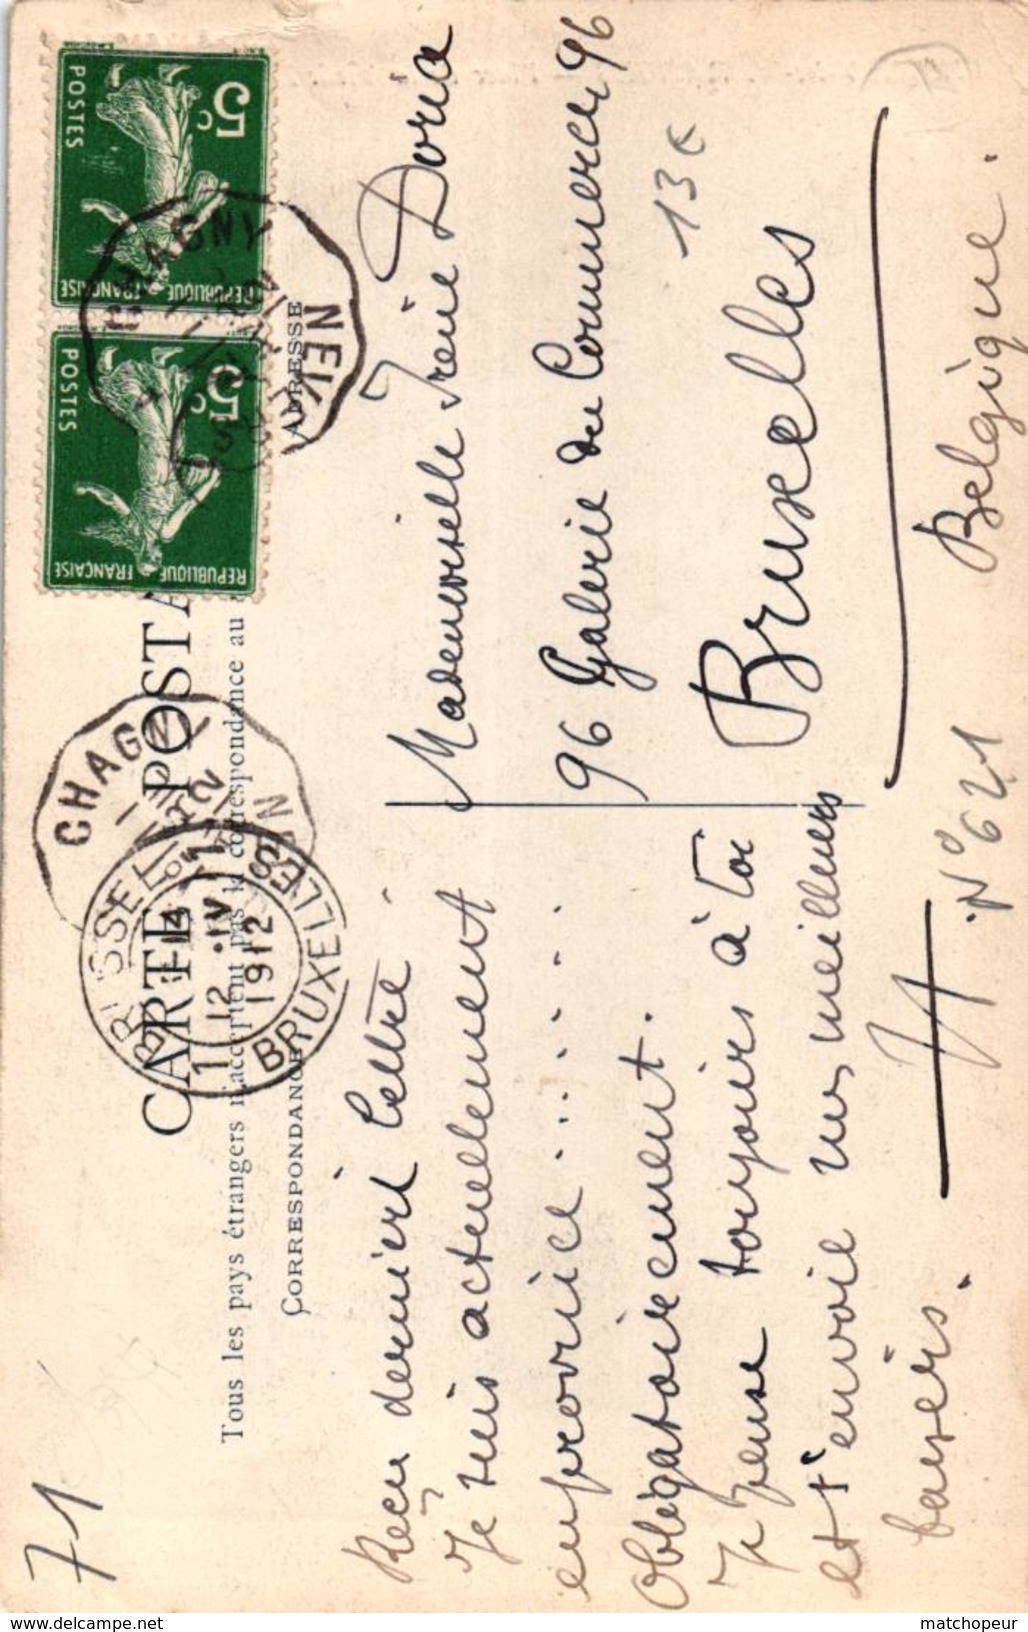 71
CARTE POSTA
Tous les pays étrangers n'acceptent pas la correspondance au
CORRESPONDANCE
ADRESSE
RÉPUBLIQUE FRANÇAISE
5c
POSTES
RÉPUBLIQUE FRANÇAISE
5c
POSTES
CHAGNY
NEV
CHAGNY
BRUSSEL
12 IV
1912
BRUXELLES
Reçu derniere lettre
Je suis actuellement
en province
Obligatoirement.
Je pense toujours à toi
et t'envoie mes meilleurs
baisers.
Mademoiselle Irène Doria
96 Galerie du Commerce 96
13€
Bruxelles
Belgique.
N° 621
matchopeur